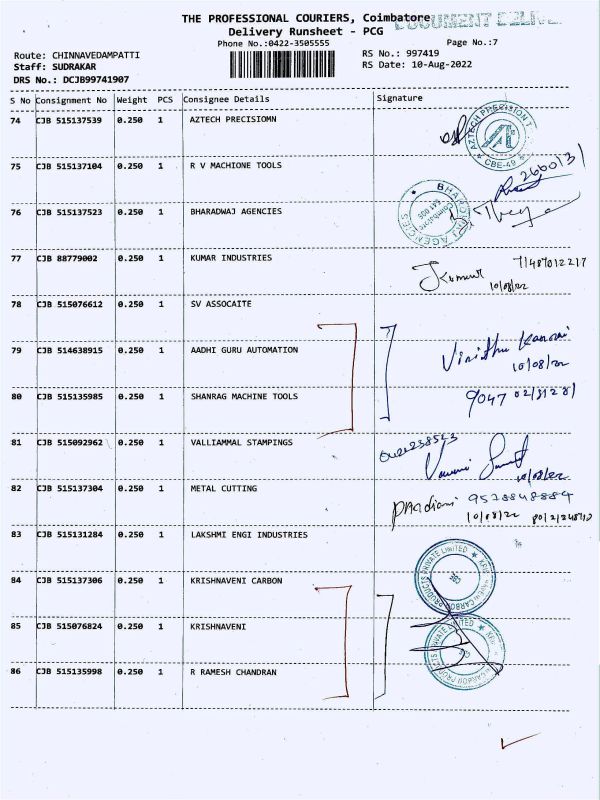 THE PROFESSIONAL COURIERS, Coimbatore
Delivery Runsheet - PCG
Phone No.:0422-3505555
Page No.:7
Route: CHINNAVEDAMPATTI
RS No.: 997419
Staff: SUDRAKAR
RS Date: 10-Aug-2022
DRS No.: DCJB99741907
S No Consignment No Weight PCS Consignee Details Signature
74 CJB 515137539 0.250 1 AZTECH PRECISIOMN
AZTECH PRECISION
CBE-49
75 CJB 515137104 0.250 1 R V MACHIONE TOOLS
76 CJB 515137523 0.250 1 BHARADWAJ AGENCIES
77 CJB 88779002 0.250 1 KUMAR INDUSTRIES
10/08/22
78 CJB 515076612 0.250 1 SV ASSOCAITE
79 CJB 514638915 0.250 1 AADHI GURU AUTOMATION
10/08/22
80 CJB 515135985 0.250 1 SHANRAG MACHINE TOOLS
81 CJB 515092962 0.250 1 VALLIAMMAL STAMPINGS
10/08/22
82 CJB 515137304 0.250 1 METAL CUTTING
9538848884
10/08/22
83 CJB 515131284 0.250 1 LAKSHMI ENGI INDUSTRIES
84 CJB 515137306 0.250 1 KRISHNAVENI CARBON
PRODUCTS PRIVATE LIMITED
85 CJB 515076824 0.250 1 KRISHNAVENI
86 CJB 515135998 0.250 1 R RAMESH CHANDRAN